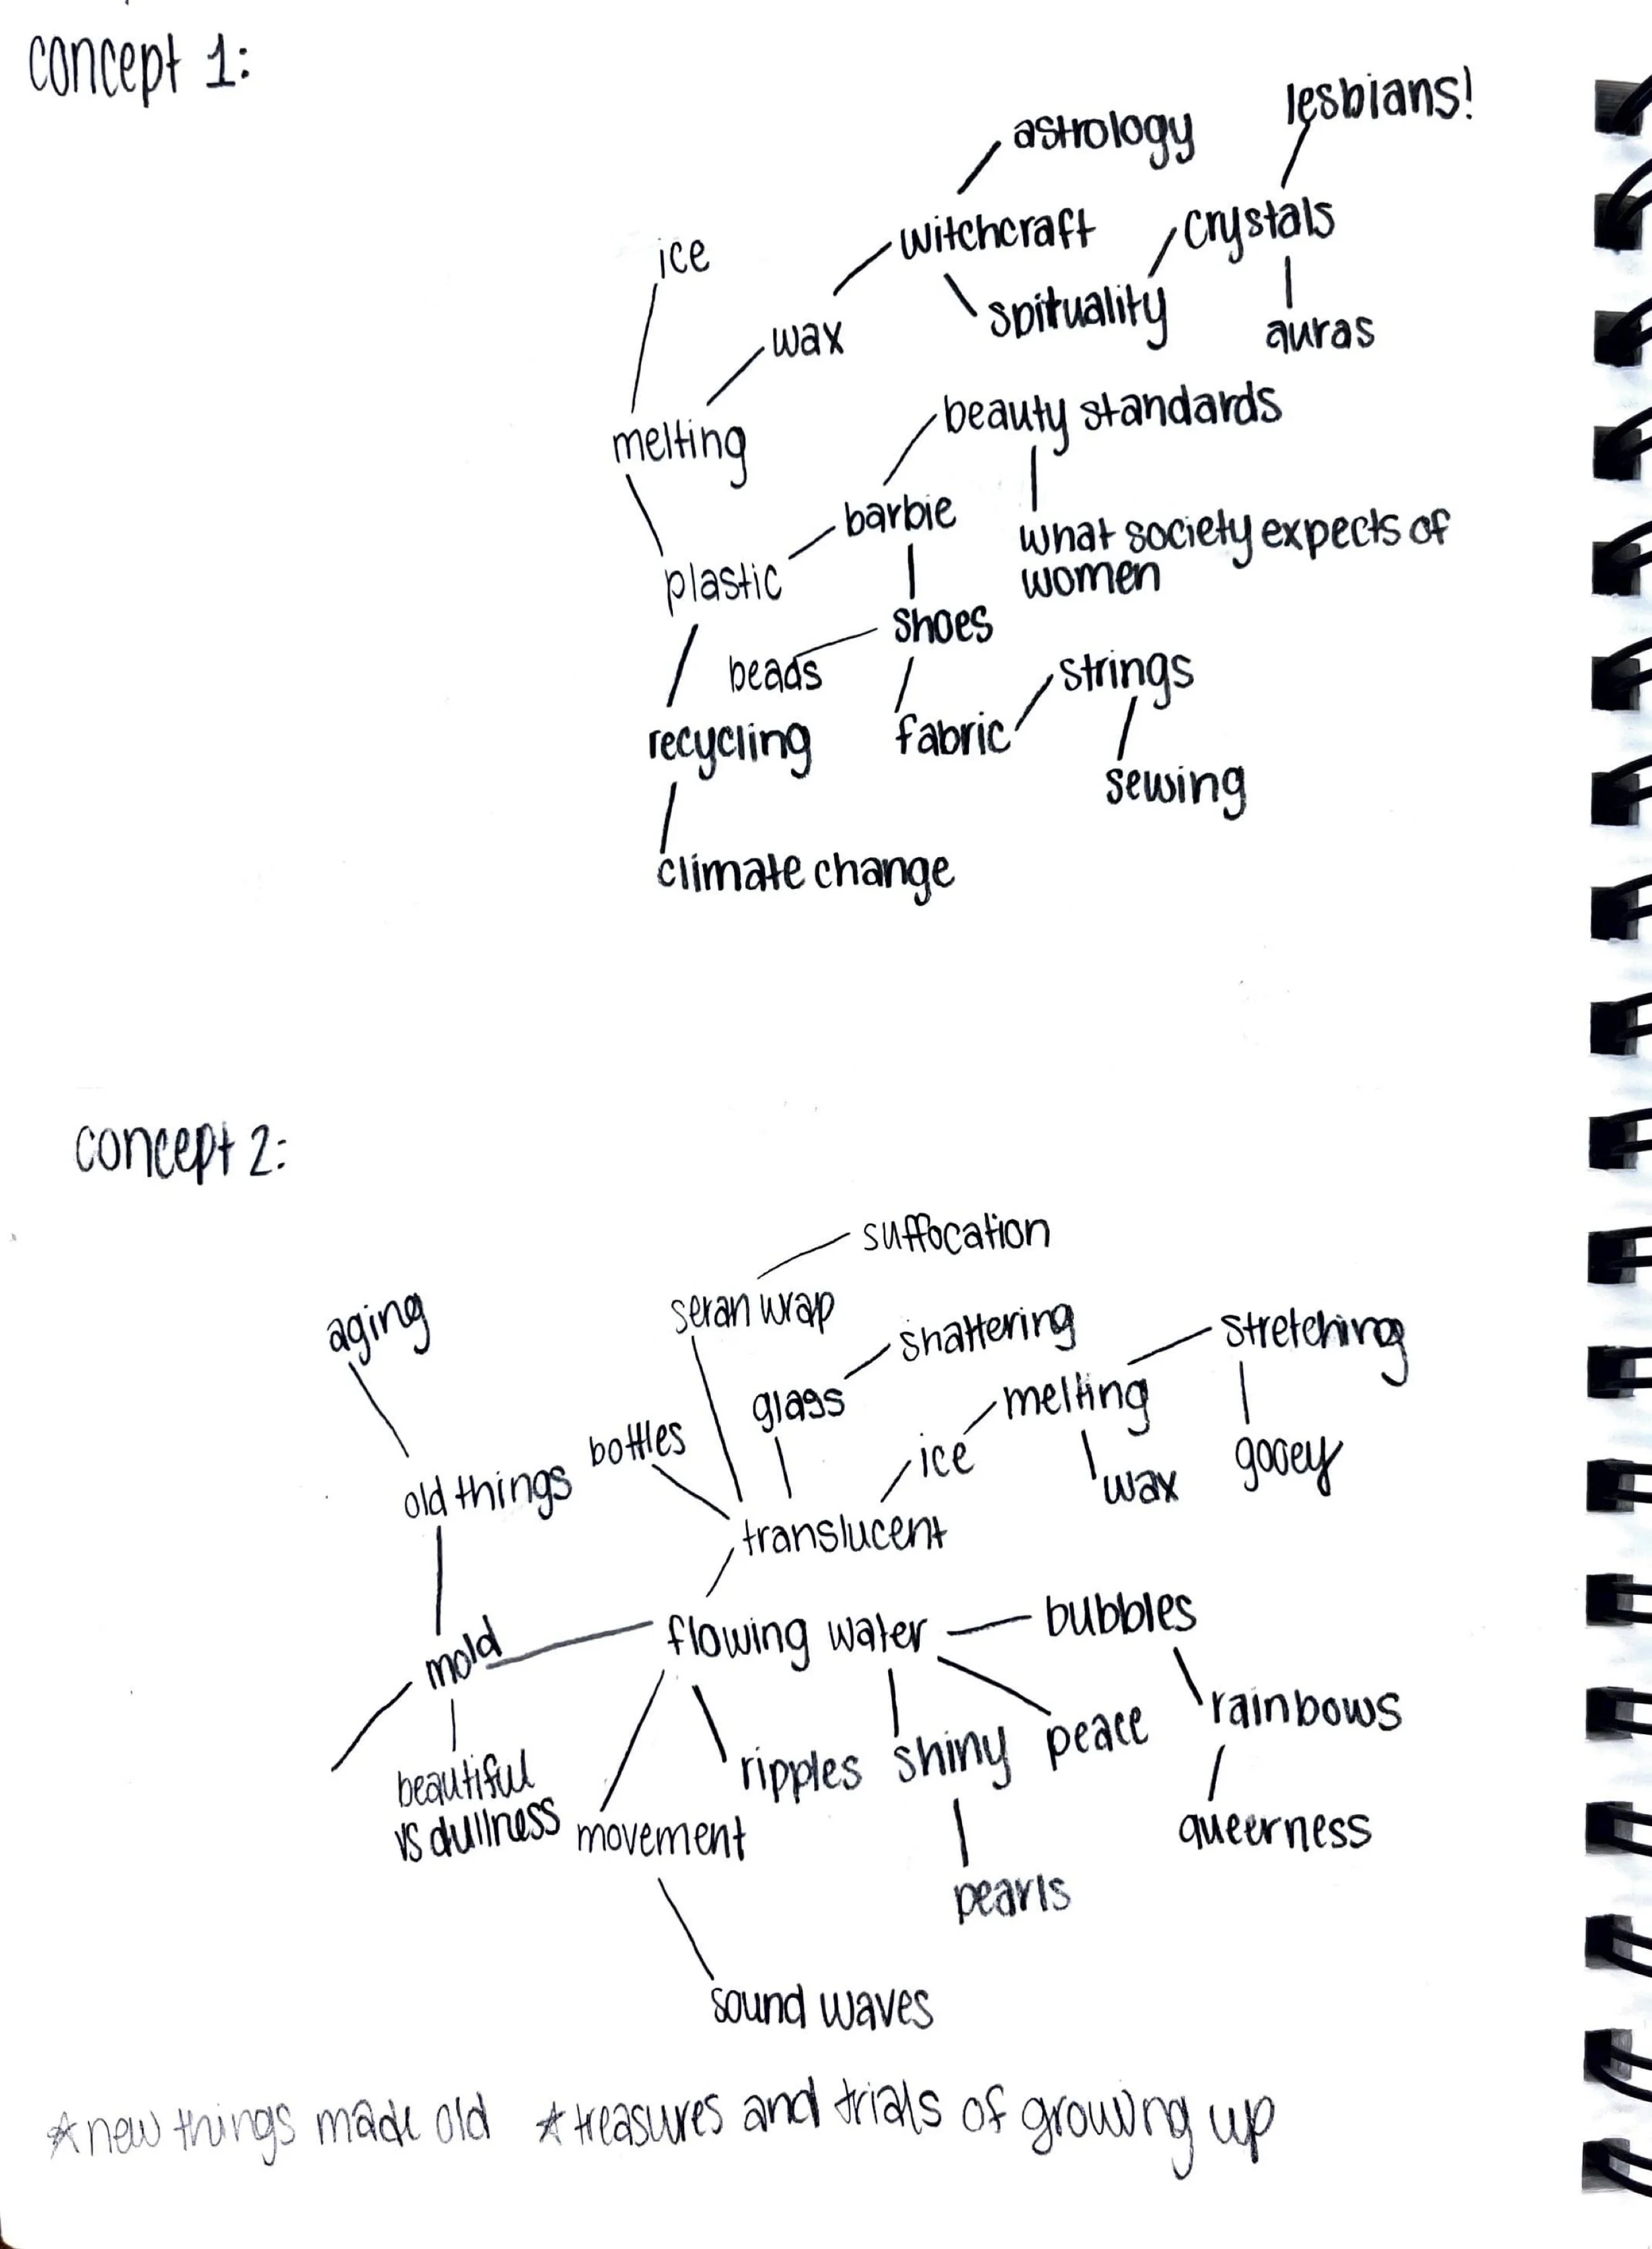 concept 1:
lesbians!
astrology
witchcraft
crystals
ice
spirtuality
auras
wax
melting
beauty standards
barbie
what society expects of
women
plastic
shoes
beads
strings
recycling
fabric
sewing
climate change
concept 2:
suffocation
seran wrap
aging
shattering
stretching
glass
melting
bottles
ice
gooey
old things
wax
translucent
mold
flowing water
bubbles
rainbows
beautiful
vs dullness
ripples
shiny
peace
movement
queerness
pearls
sound waves
*new things made old *treasures and trials of growing up